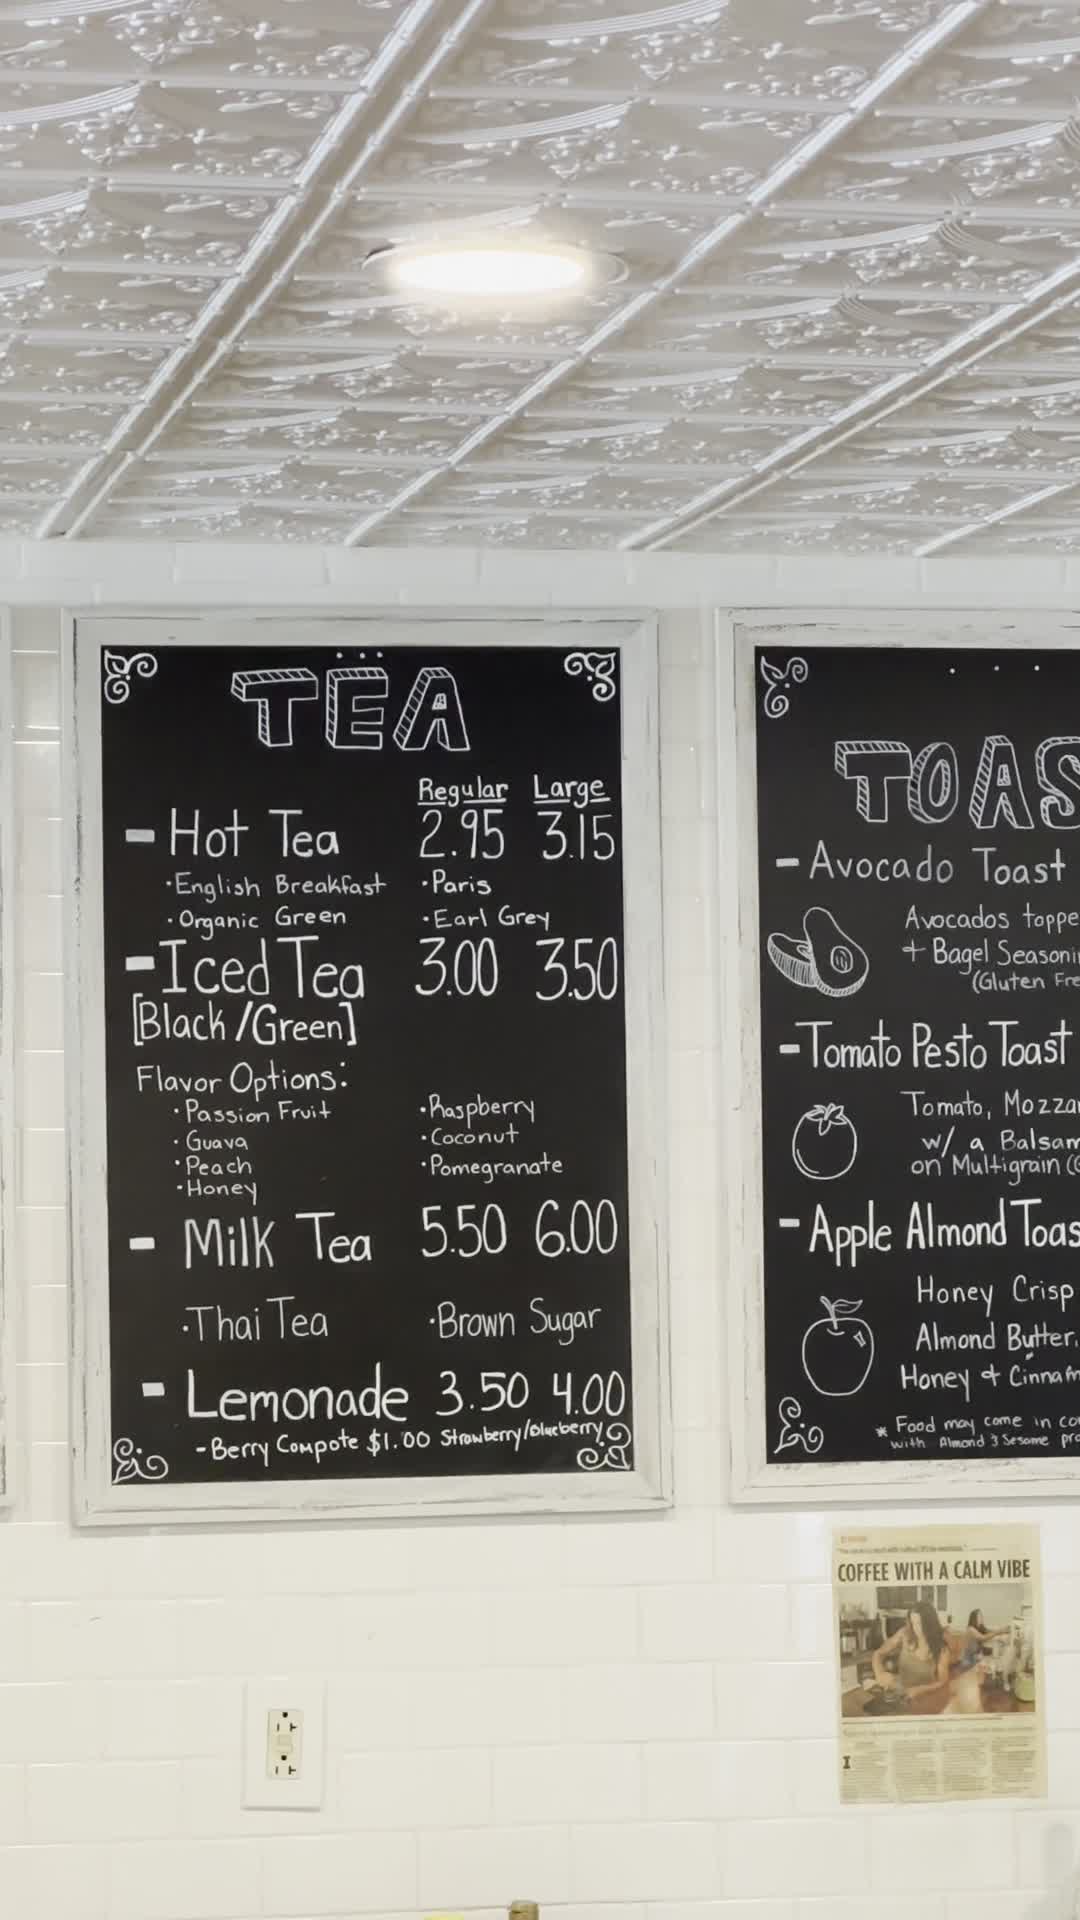 TEA
Regular Large
- Hot Tea 2.95 3.15
·English Breakfast ·Paris
·Organic Green ·Earl Grey
-Iced Tea 3.00 3.50
[Black/Green]
Flavor Options:
·Passion Fruit ·Raspberry
·Guava ·Coconut
·Peach ·Pomegranate
·Honey
- Milk Tea 5.50 6.00
·Thai Tea ·Brown Sugar
- Lemonade 3.50 4.00
-Berry Compote $1.00 Strawberry/Blueberry
TOAS
-Avocado Toast
Avocados toppe
+ Bagel Seasonin
(Gluten Fre
-Tomato Pesto Toast
Tomato, Mozzar
w/ a Balsam
on Multigrain (G
-Apple Almond Toas
Honey Crisp
Almond Butter,
Honey & Cinnam
* Food may come in co
with Almond & Sesame pro
COFFEE WITH A CALM VIBE